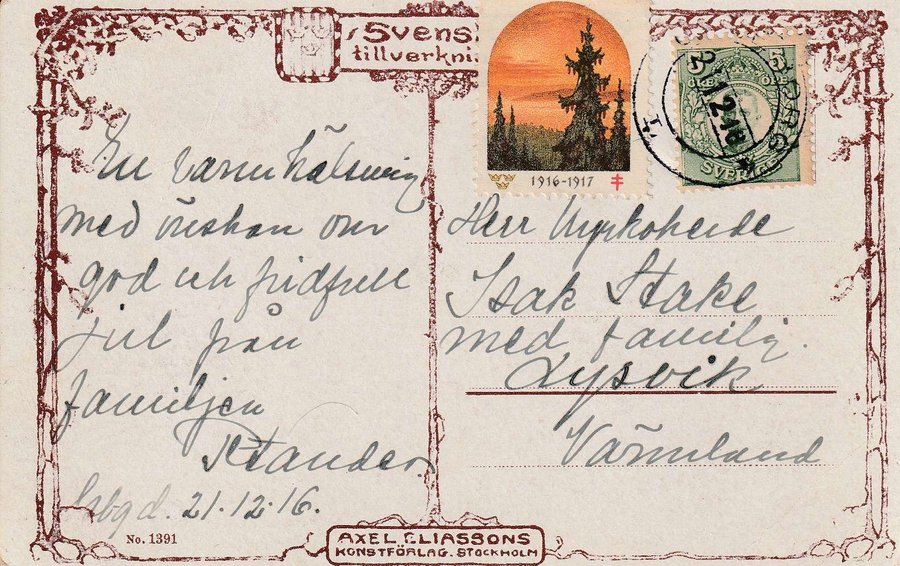 Svens
tillverkni
1916-1917
5
5
SVERIGE
21.12.16
En varm hälsning
med önskan om
god och fridfull
jul från
familjen
Stander
21.12.16.
Herr Kyrkoherde
Isak Stake
med familj.
Lysvik
Värmland
No. 1391
AXEL ELIASSONS
KONSTFÖRLAG. STOCKHOLM